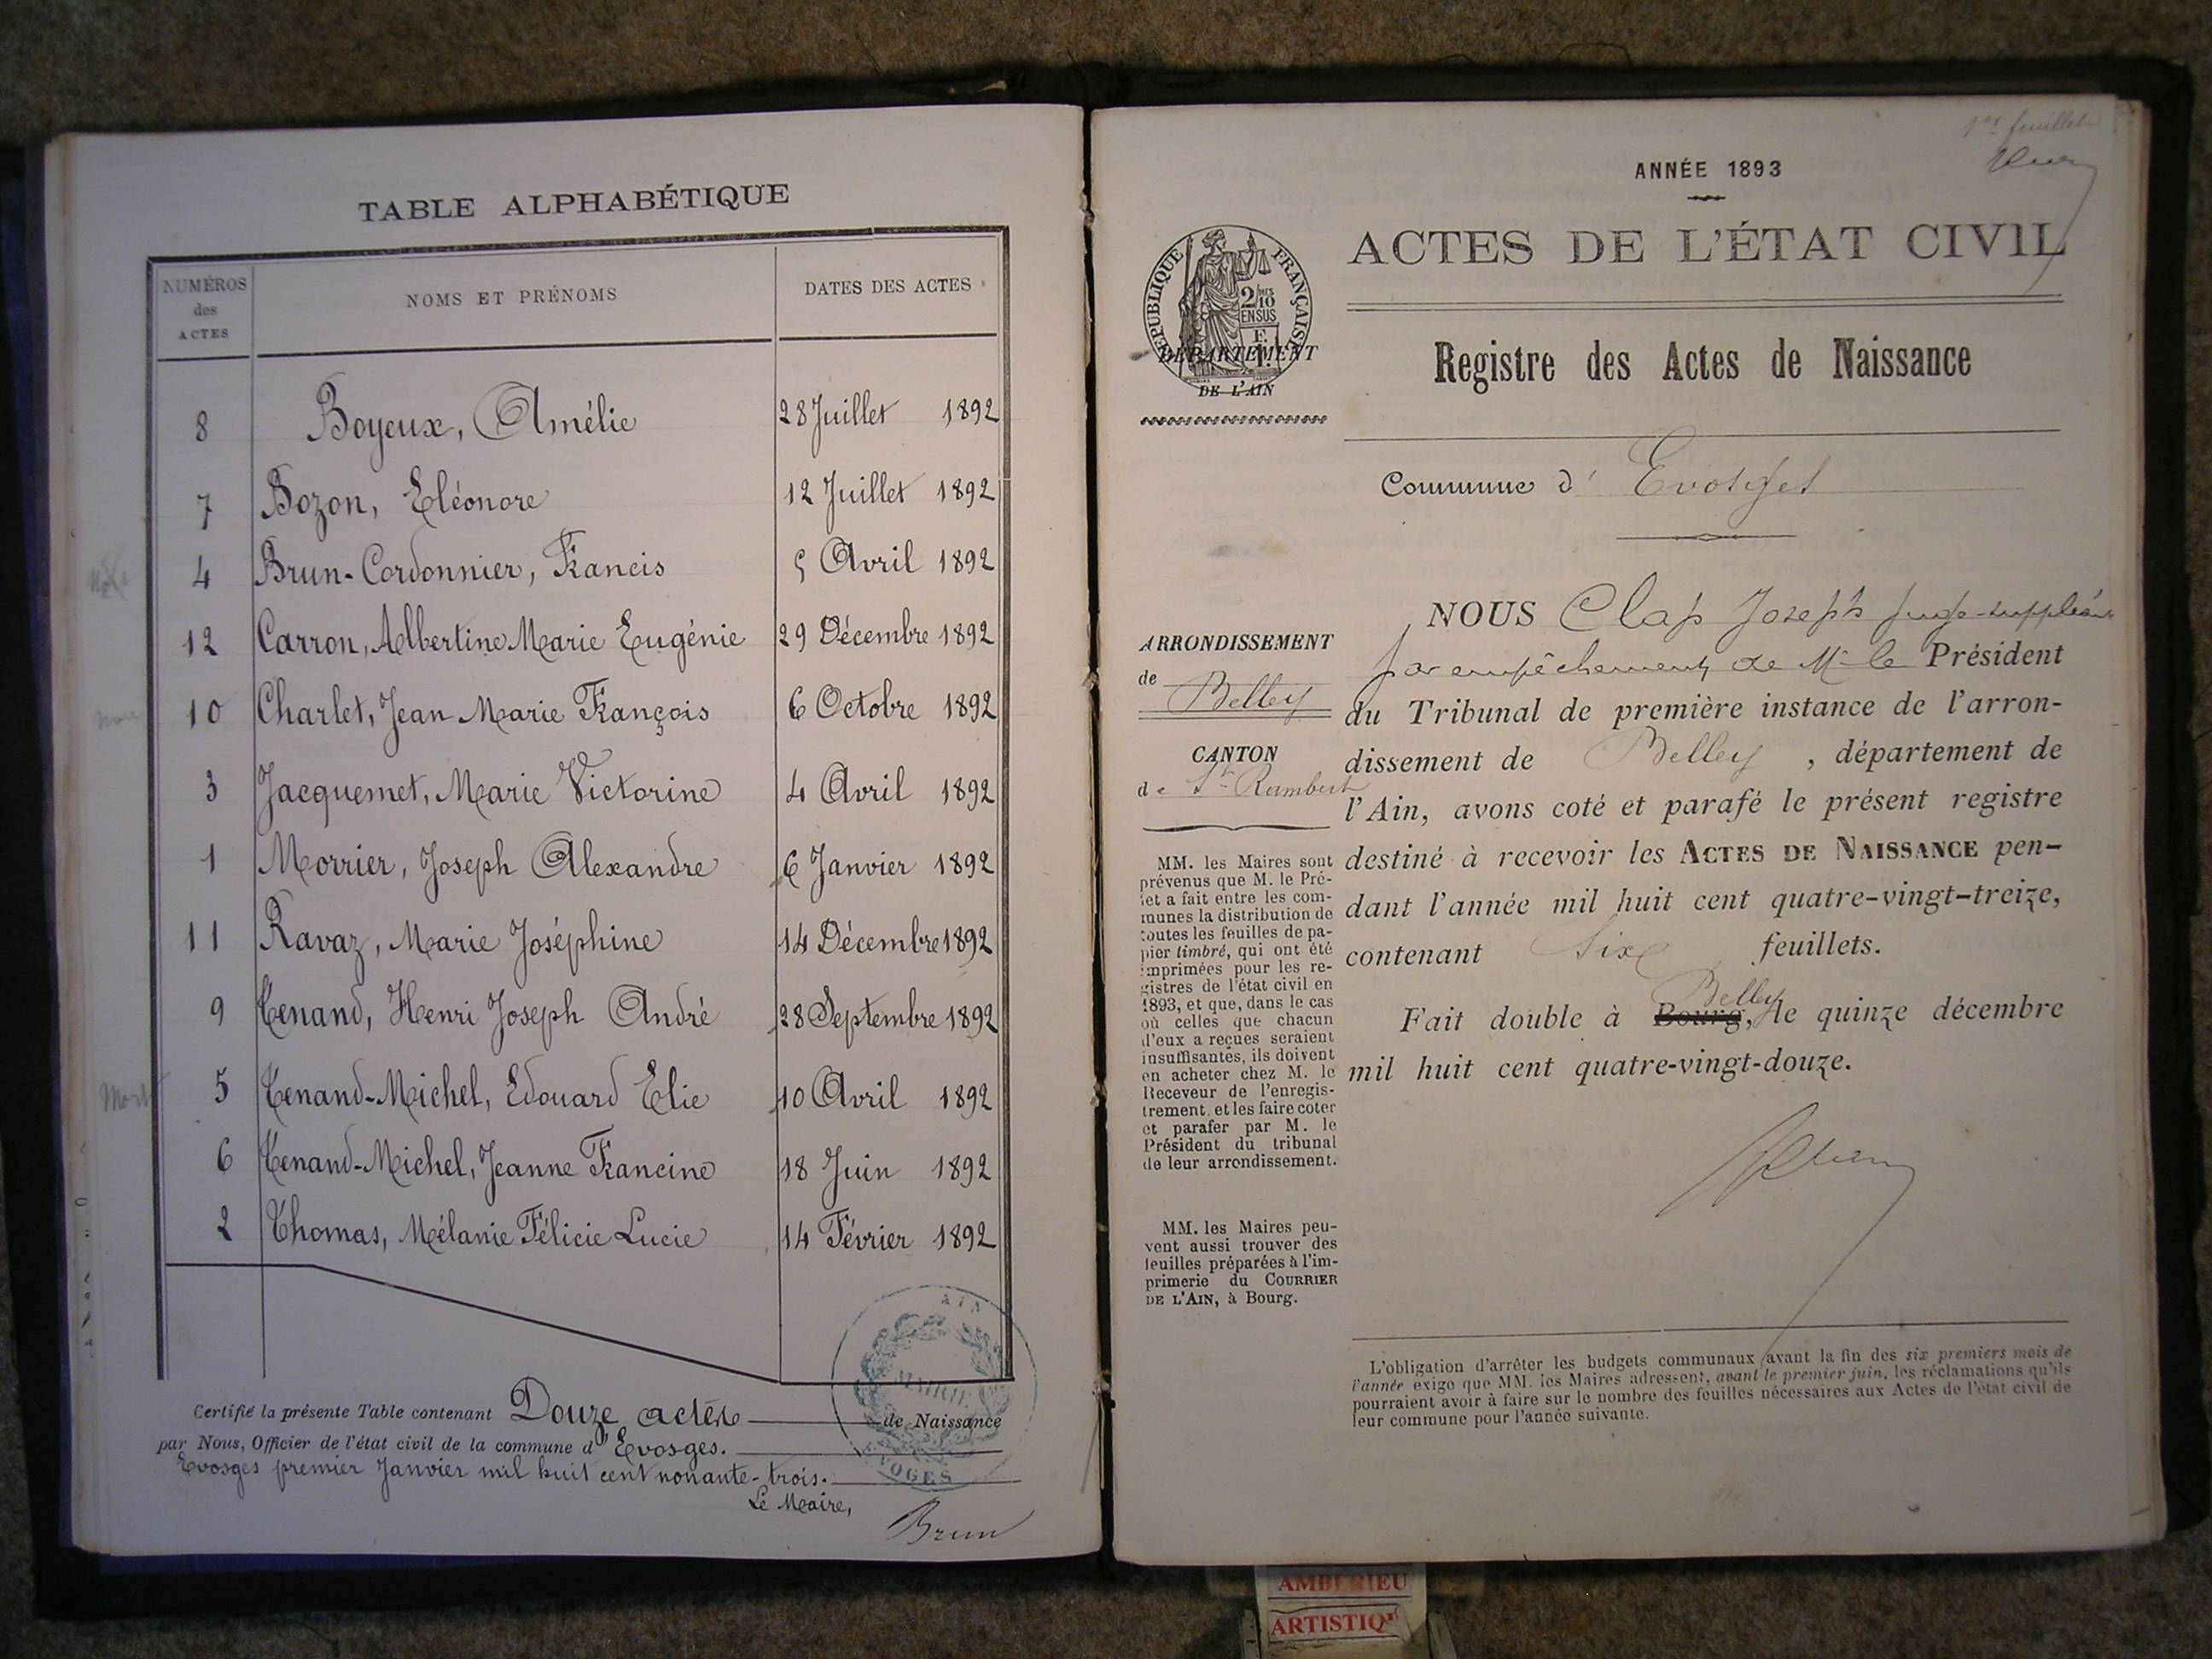 TABLE ALPHABÉTIQUE
NUMÉROS des ACTES NOMS ET PRÉNOMS DATES DES ACTES
8 Boyeux, Amélie 28 Juillet 1892
7 Bozon, Eléonore 12 Juillet 1892
4 Brun-Cordonnier, Francis 5 Avril 1892
12 Carron, Albertine Marie Eugénie 29 Décembre 1892
10 Charlet, Jean Marie François 6 Octobre 1892
3 Jacquemet, Marie Victorine 4 Avril 1892
1 Morrier, Joseph Alexandre 6 Janvier 1892
11 Ravaz, Marie Joséphine 14 Décembre 1892
9 Tenand, Henri Joseph André 28 Septembre 1892
Mort 5 Tenand-Michel, Edouard Elie 10 Avril 1892
6 Tenand-Michel, Jeanne Francine 18 Juin 1892
2 Thomas, Mélanie Félicie Lucie 14 Février 1892
Certifié la présente Table contenant Douze actes de Naissance
par Nous, Officier de l'état civil de la commune d'Evosges.
Evosges premier Janvier mil huit cent nonante-trois.
Le Maire,
Brun
AIN
MAIRIE
1er feuillet
ANNÉE 1893
ACTES DE L'ÉTAT CIVIL
RÉPUBLIQUE FRANÇAISE
2/10
EN SUS
DÉPARTEMENT
DE L'AIN
Registre des Actes de Naissance
Commune d' Evosges
ARRONDISSEMENT
de Belley
CANTON
de St Rambert
NOUS Clap Joseph juge-suppléant
par empêchement de Mr le Président
du Tribunal de première instance de l'arron-
dissement de Belley, département de
l'Ain, avons coté et parafé le présent registre
destiné à recevoir les ACTES DE NAISSANCE pen-
dant l'année mil huit cent quatre-vingt-treize,
contenant Six feuillets.
Belley
Fait double à Bourg, le quinze décembre
mil huit cent quatre-vingt-douze.
MM. les Maires sont
prévenus que M. le Pré-
fet a fait entre les com-
munes la distribution de
toutes les feuilles de pa-
pier timbré, qui ont été
imprimées pour les re-
gistres de l'état civil en
1893, et que, dans le cas
où celles que chacun
d'eux a reçues seraient
insuffisantes, ils doivent
en acheter chez M. le
Receveur de l'enregis-
trement, et les faire coter
et parafer par M. le
Président du tribunal
de leur arrondissement.
MM. les Maires peu-
vent aussi trouver des
feuilles préparées à l'im-
primerie du COURRIER
DE L'AIN, à Bourg.
L'obligation d'arrêter les budgets communaux avant la fin des six premiers mois de
l'année exige que MM. les Maires adressent, avant le premier juin, les réclamations qu'ils
pourraient avoir à faire sur le nombre des feuilles nécessaires aux Actes de l'état civil de
leur commune pour l'année suivante.
AMBERIEU
ARTISTIQ